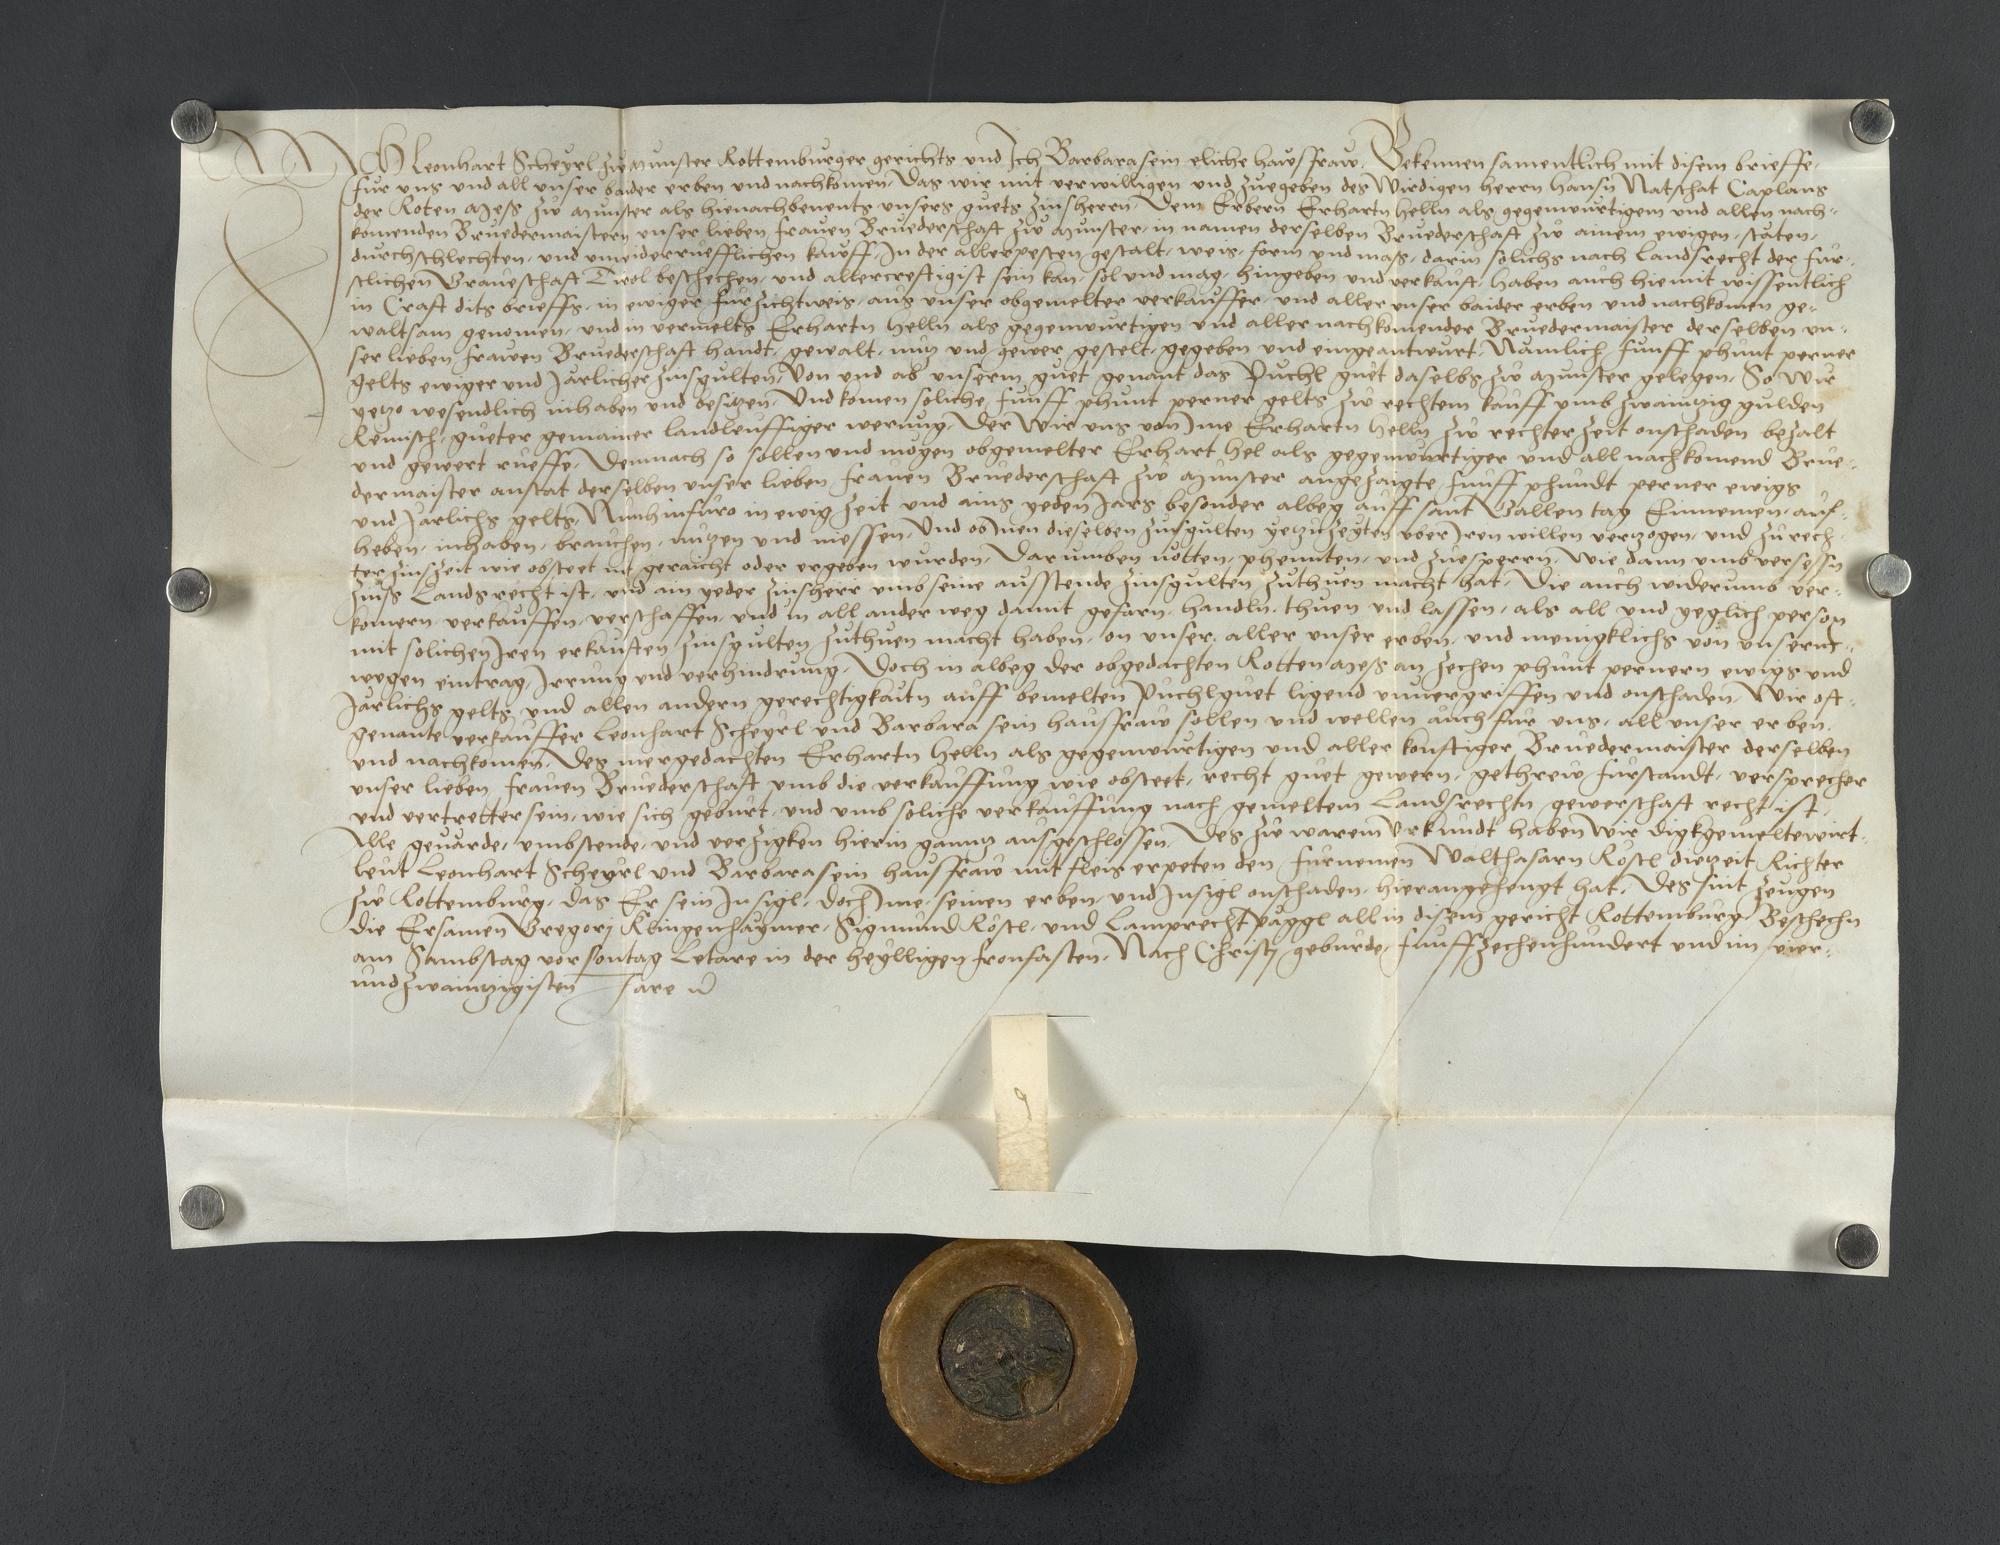 Ich Leonhart Scheyrl zu Munster Rottemburger gerichts und Ich Barbara sein eliche hawsfraw. Bekennen samentlich mit disem brieffe,
fur uns und all unser baider erben und nachkomen, Das wir mit verwilligen und zuegeben des Wirdigen herrn hansn Natschat Caplans
der Roten mess zu Munster als hienachbenents unsers guets zinsherrn, Dem Erbern Erhartn helln als gegenwurtigem und allen nach-
komenden Bruedermaistern unser lieben frauen Bruederschaft zu Munster, in namen derselben Bruederschaft zu ainem ewigen, stäten,
durchschlechten, und unwiderruefflichen kauff, In der allerpesten gestalt, weis, form und mass, darin solichs nach Landsrecht der fur-
stlichen Graveschaft Tirol beschechen, und allercreftigist sein kan, sol und mag, hingeben und verkauft, haben auch hiemit wissentlich
in Craft dits brieffs, in ewiger furzichtweis, aus unser obgemelter verkauffer, und aller unser baider erben und nachkomen ge-
waltsam genomen, und in vermelts Erhartn helln als gegenwurtigen und aller nachkomender Bruedermaister derselben un-
ser lieben frawen Bruederschaft handt, gewalt, nutz und gewer gestelt, gegeben und eingeantwurt, Namlich funff phunt perner
gelts ewiger und Järlicher zinsgulten, Von und ab unserm guet genant das Puchl guet daselbs zu Munster gelegen, So wir
yetzo wesendlich inhaben und besitzen, Und komen soliche funff phunt perner gelts zu rechtem kauff umb zwaintzig gulden
Reinisch, gueter gemainer landleuffiger werung, Der wir uns von Ime Erhartn helln zu rechter zeit onschaden bezalt
und gewert rueffe, Demnach so sollen und mogen obgemelter Erhart hel als gegenwurtiger und all nachkomend Brue-
dermaister anstat derselben unser lieben frauen Bruederschaft zu Munster angezaigte funff phundt perner ewigs
und Järlichs gelts, Nunhinfuro in ewig zeit und ains yeden Jars besonder albeg auff sant Gallen tag Einnemen, auf-
heben, inhaben, brauchen, nutzen und niessen, Und ob Inen dieselben zinsgulten yetzuzeyten uber Iren willen vertzogen, und zu rech-
ter zinszeit wie obsteet nit geraicht oder ergeben wurden, Darumben nötten, phennten, und zuesperrn, Wie dann umb versessn
zinss Landsrecht ist, und ain yeder zinsherr umb seine ausstende zinsgulten zuthuen macht hat, Die auch widerumb ver-
komern, verkauffen, verschaffen, und in all ander weg damit gefarn, handln, thuen und lassen, als all und yeglich person
mit solichen Iren erkauften zinsgulten zuthuen macht haben, on unser, aller unser erben, und menigklichs von unsernt-
wegen eintrag, Irrung und verhindrung, Doch in albeg der obgedachten Rotten mess an zechen phunt pernern ewigs und
Järlichs gelts, und allen andern gerechtigkaitn auff bemelten Puchlguet ligend unvergriffen und onschaden, Wir oft-
genante verkauffer Leonhart Scheyrl und Barbara sein hausfraw sollen und wellen auch fur uns, all unser erben,
und nachkomen, Des mergedachten Erhartn helln als gegenwurtigen und aller konftiger Bruedermaister derselben
unser lieben frauen Bruederschaft umb die verkauffung wie obsteet, recht guet gewern, gethrew furstandt, versprecher
und vertretter sein, wie sich geburt, und umb soliche verkauffung nach gemeltem Landsrechtn, gewerschaft recht ist,
Alle gevärde, umbstende, und verzigken hierin gantz ausgeschlossen, Des zu warem Urkundt haben wir digkgemelte wirt-
leut Leonhart Scheyrl und Barbara sein hausfraw mit fleis erpeten den furnemen Walthasarn Köstl dietzeit Richter
zu Rottemburg, das Er sein Insigl, doch Ime, seinen erben, und Insigl onschaden, hierangehengt hat, Des sint zeugen
die Ersamen Gregorj Klingenhaymer, Sigmund Köstl, und Lamprecht Päggl all in disem gericht Rottemburg, Beschechn
am Sambstag vor sontag Letare in der heylligen fronfasten, Nach Christj geburde, funffzechenhundert und im vier-
undzwaintzigisten Jare